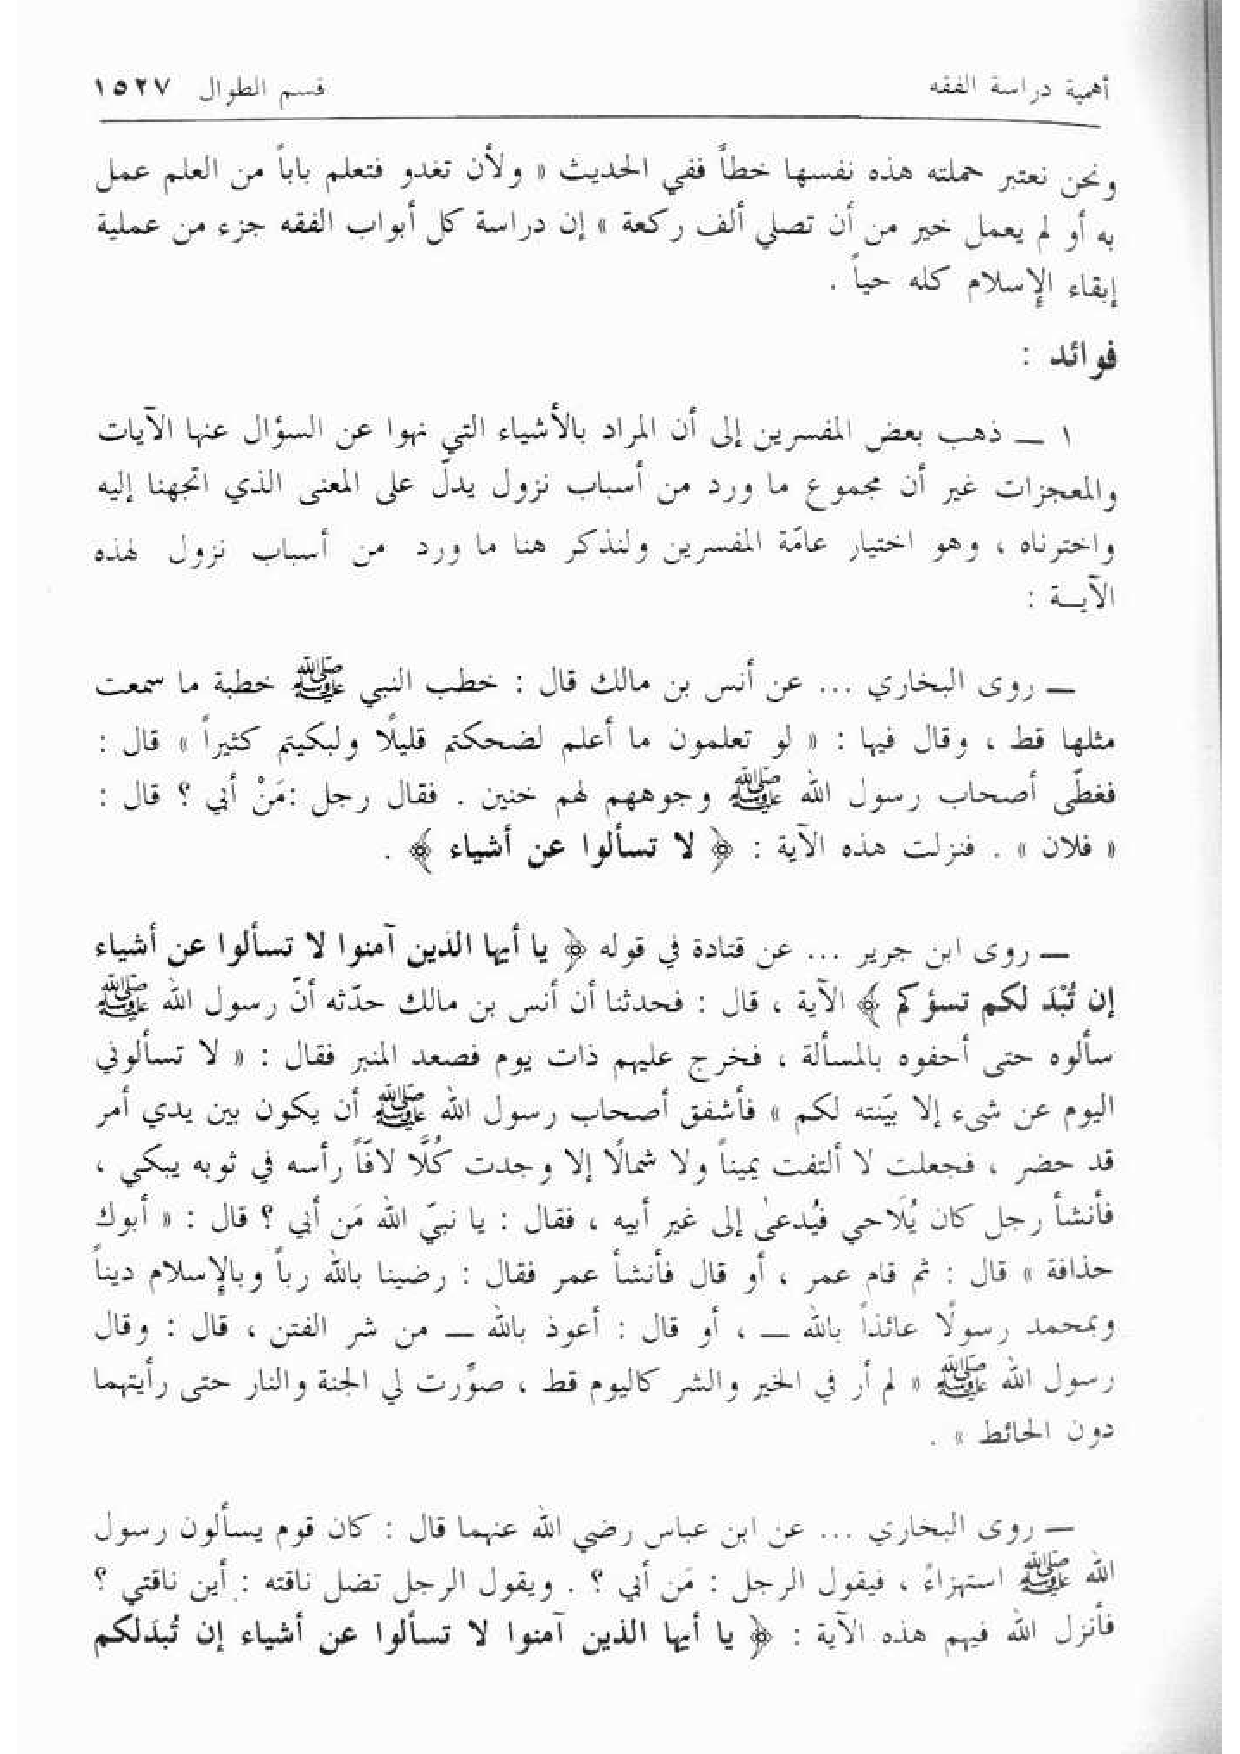 أهمية دراسة الفقه قسم الطوال ١٥٢٧
ونحن نعتبر حملته هذه نفسها خطأً ففي الحديث « ولأن تغدو فتعلم باباً من العلم عمل
به أو لم يعمل خير من أن تصلي ألف ركعة » إن دراسة كل أبواب الفقه جزء من عملية
إبقاء الإسلام كله حياً .
فوائد :
١ ــ ذهب بعض المفسرين إلى أن المراد بالأشياء التي نهوا عن السؤال عنها الآيات
والمعجزات غير أن مجموع ما ورد من أسباب نزول يدلّ على المعنى الذي اتجهنا إليه
واخترناه ، وهو اختيار عامّة المفسرين ولنذكر هنا ما ورد من أسباب نزول لهذه
الآيــة :
ــ روى البخاري ... عن أنس بن مالك قال : خطب النبي ﷺ خطبة ما سمعت
مثلها قط ، وقال فيها : « لو تعلمون ما أعلم لضحكتم قليلًا ولبكيتم كثيراً » قال :
فغطّى أصحاب رسول الله ﷺ وجوههم لهم خنين . فقال رجل :مَنْ أبي ؟ قال :
« فلان » . فنزلت هذه الآية : ﴿ لا تسألوا عن أشياء ﴾ .
ــ روى ابن جرير ... عن قتادة في قوله ﴿ يا أيها الذين آمنوا لا تسألوا عن أشياء
إن تُبْدَ لكم تسؤكم ﴾ الآية ، قال : فحدثنا أن أنس بن مالك حدّثه أنّ رسول الله ﷺ
سألوه حتى أحفوه بالمسألة ، فخرج عليهم ذات يوم فصعد المنبر فقال : « لا تسألوني
اليوم عن شىء إلا بيّنته لكم » فأشفق أصحاب رسول الله ﷺ أن يكون بين يدي أمر
قد حضر ، فجعلت لا ألتفت يميناً ولا شمالًا إلا وجدت كُلَّا لافّاً رأسه في ثوبه يبكي ،
فأنشأ رجل كان يُلَاحي فيُدعىٰ إلى غير أبيه ، فقال : يا نبيّ الله مَن أبي ؟ قال : « أبوك
حذافة » قال : ثم قام عمر ، أو قال فأنشأ عمر فقال : رضينا بالله رباً وبالإسلام ديناً
وبمحمد رسولًا عائذاً بالله ــ ، أو قال : أعوذ بالله ــ من شر الفتن ، قال : وقال
رسول الله ﷺ « لم أر في الخير والشر كاليوم قط ، صوِّرت لي الجنة والنار حتى رأيتهما
دون الحائط » .
ــ روى البخاري ... عن ابن عباس رضي الله عنهما قال : كان قوم يسألون رسول
الله ﷺ استهزاءً ، فيقول الرجل : مَن أبي ؟ . ويقول الرجل تضل ناقته : أين ناقتي ؟
فأنزل الله فيهم هذه الآية : ﴿ يا أيها الذين آمنوا لا تسألوا عن أشياء إن تُبدَلكم